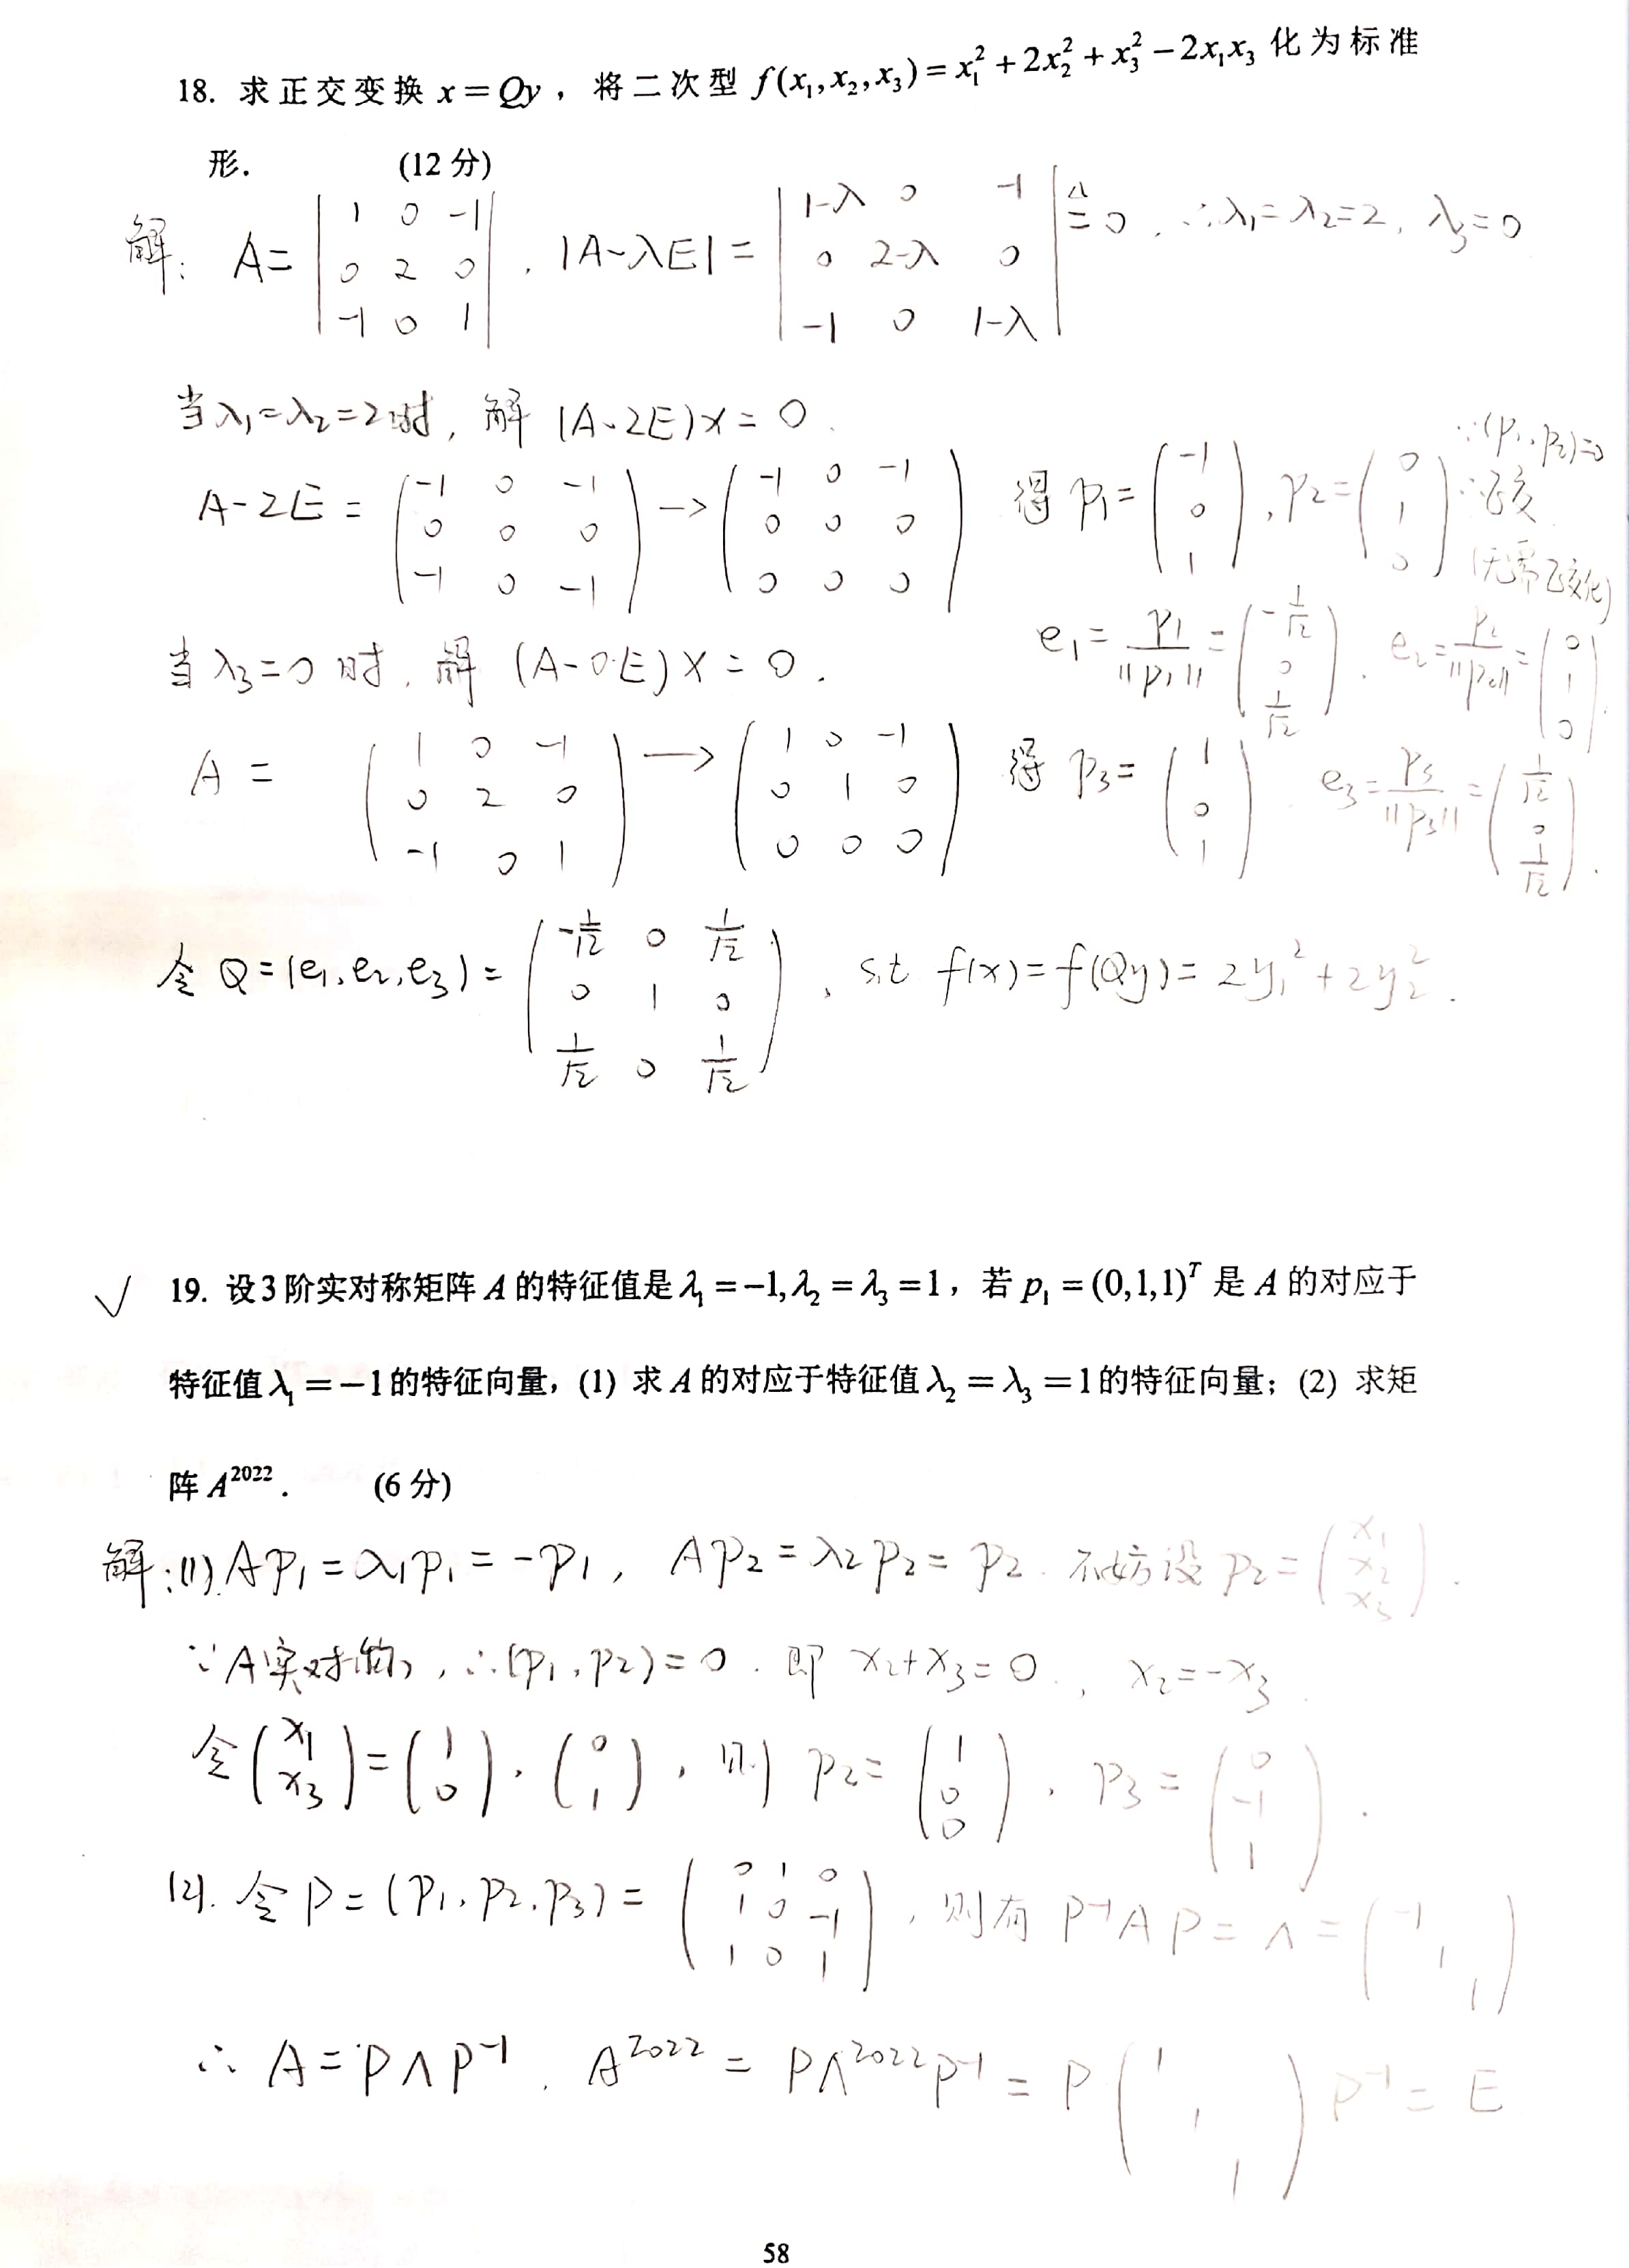 18. 求正交变换 x = Qy ，将二次型 f(x₁,x₂,x₃) = x₁² + 2x₂² + x₃² − 2x₁x₃ 化为标准
形. (12 分)
解: A = | 1 0 -1 ; 0 2 0 ; -1 0 1 | , |A-λE| = | 1-λ 0 -1 ; 0 2-λ 0 ; -1 0 1-λ | ≙ 0 , ∴λ₁=λ₂=2, λ₃=0
当λ₁=λ₂=2时, 解 (A-2E)x=0.
A-2E = ( -1 0 -1 ; 0 0 0 ; -1 0 -1 ) → ( -1 0 -1 ; 0 0 0 ; 0 0 0 ) 得 p₁= ( -1 ; 0 ; 1 ), p₂= ( 0 ; 1 ; 0 ) ∵(p₁,p₂)=0 ∴正交 (无需正交化)
e₁ = p₁/||p₁|| = ( -1/√2 ; 0 ; 1/√2 ). e₂ = p₂/||p₂|| = ( 0 ; 1 ; 0 ).
当λ₃=0时, 解 (A-0·E)x=0.
A = ( 1 0 -1 ; 0 2 0 ; -1 0 1 ) → ( 1 0 -1 ; 0 1 0 ; 0 0 0 ) 得 p₃= ( 1 ; 0 ; 1 ) e₃ = p₃/||p₃|| = ( 1/√2 ; 0 ; 1/√2 ).
令 Q=(e₁,e₂,e₃) = ( -1/√2 0 1/√2 ; 0 1 0 ; 1/√2 0 1/√2 ), s.t f(x)=f(Qy)= 2y₁²+2y₂².
✓ 19. 设 3 阶实对称矩阵 A 的特征值是 λ₁ = −1, λ₂ = λ₃ = 1，若 p₁ = (0,1,1)ᵀ 是 A 的对应于
特征值 λ₁ = −1 的特征向量，(1) 求 A 的对应于特征值 λ₂ = λ₃ = 1 的特征向量；(2) 求矩
阵 A²⁰²² . (6 分)
解:(1). Ap₁=λ₁p₁=-p₁, Ap₂=λ₂p₂=p₂. 不妨设 p₂= ( x₁ ; x₂ ; x₃ ).
∵A实对称, ∴(p₁,p₂)=0. 即 x₂+x₃=0., x₂=-x₃.
令 ( x₁ ; x₃ ) = ( 1 ; 0 ), ( 0 ; 1 ), 则 p₂= ( 1 ; 0 ; 0 ), p₃= ( 0 ; -1 ; 1 ).
(2). 令 P=(p₁,p₂,p₃)= ( 0 1 0 ; 1 0 -1 ; 1 0 1 ), 则有 P⁻¹AP=Λ= ( -1 1 1 )
∴ A=PΛP⁻¹. A²⁰²² = PΛ²⁰²²P⁻¹ = P ( 1 1 1 ) P⁻¹ = E
58